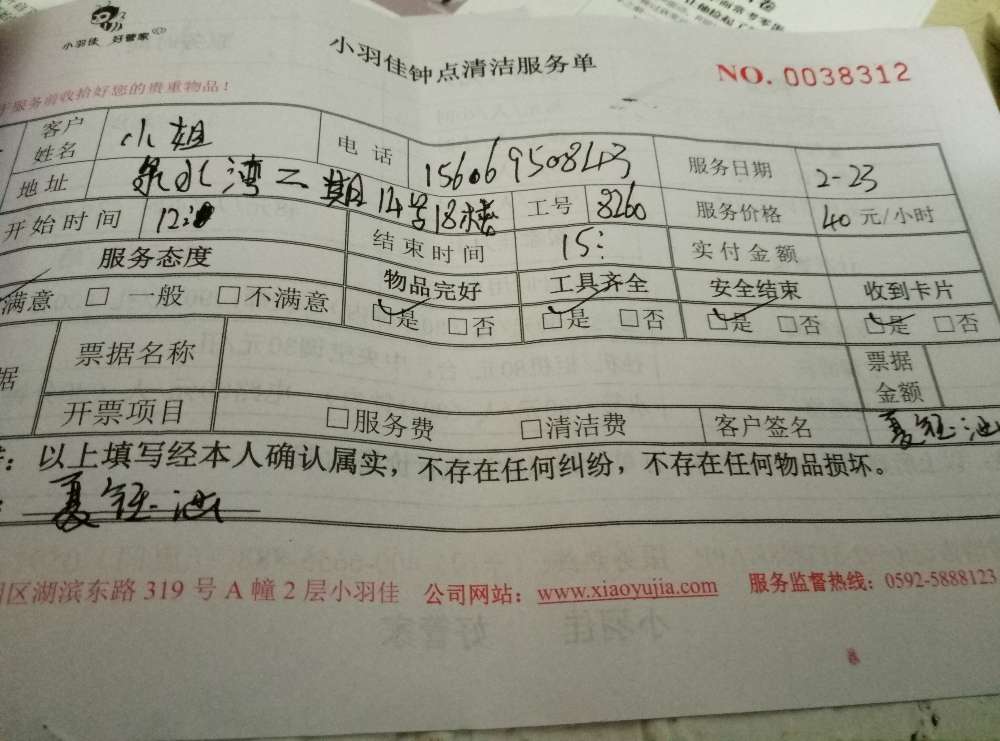 小羽佳 好管家
小羽佳钟点清洁服务单
NO. 0038312
服务前收拾好您的贵重物品！
客户姓名 小姐 电话 15606950843 服务日期 2-23
地址 泉水湾二期14号18楼 工号 8260 服务价格 40元/小时
开始时间 12: 结束时间 15: 实付金额
服务态度 物品完好 工具齐全 安全结束 收到卡片
满意 □一般 □不满意 □是 □否 □是 □否 □是 □否 □是 □否
据 票据名称 票据金额
开票项目 □服务费 □清洁费 客户签名 夏
：以上填写经本人确认属实，不存在任何纠纷，不存在任何物品损坏。
： 夏
区湖滨东路 319 号 A 幢 2 层小羽佳 公司网站：www.xiaoyujia.com 服务监督热线：0592-5888123